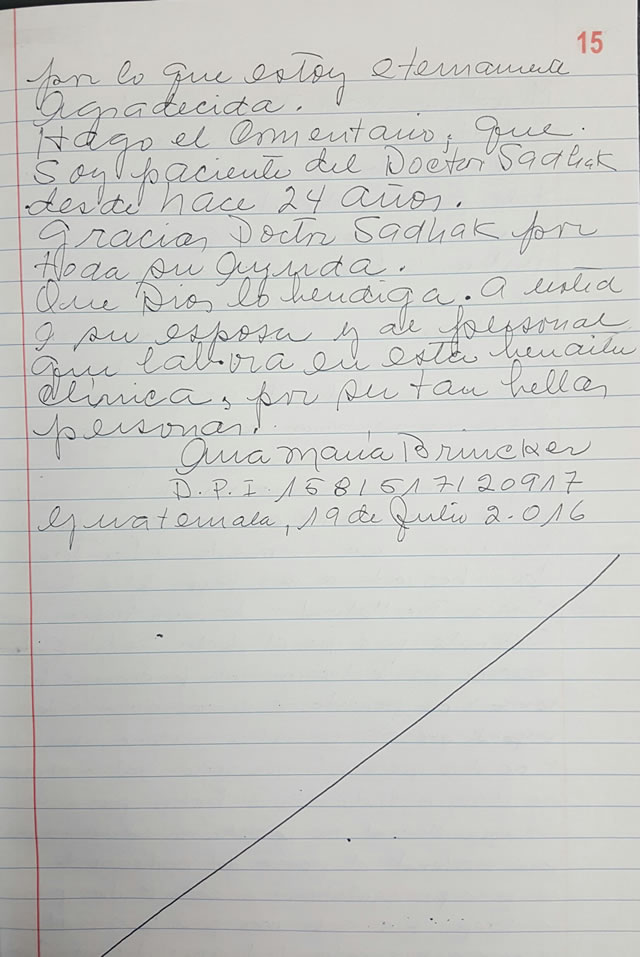 15
por lo que estoy eternamente
Agradecida.
Hago el Comentario, que
Soy paciente del Doctor Sadhak
desde hace 24 años.
Gracias Doctor Sadhak por
toda su Ayuda.
Que Dios lo bendiga. A usted
y su esposa y al personal
que labora en esta bendita
clínica, por ser tan bellas
personas.
Ana María Brincker
D.P.I. 1581517120917
Guatemala, 19 de Julio 2.016